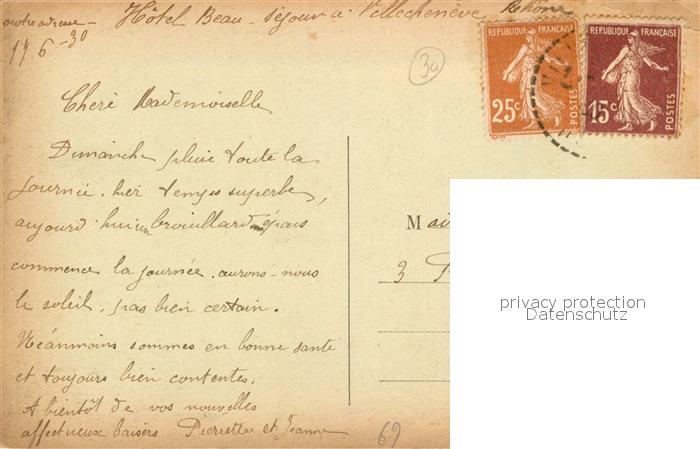 notre adresse - Hôtel Beau - séjour à Villechenève Rhône
17.6-30
30
REPUBLIQUE FRANÇAISE
25c POSTES
REPUBLIQUE FRANÇAISE
15c POSTES
Cheré Mademoiselle
Dimanche pluie toute la
journée. hier temps superbe,
aujourd'hui un brouillard épais
commence la journée. aurons-nous
le soleil. pas bien certain.
Néanmoins sommes en bonne santé
et toujours bien contentes.
A bientôt de vos nouvelles
affectueux baisers Pierrette et Jeanne
M
3
69
privacy protection
Datenschutz